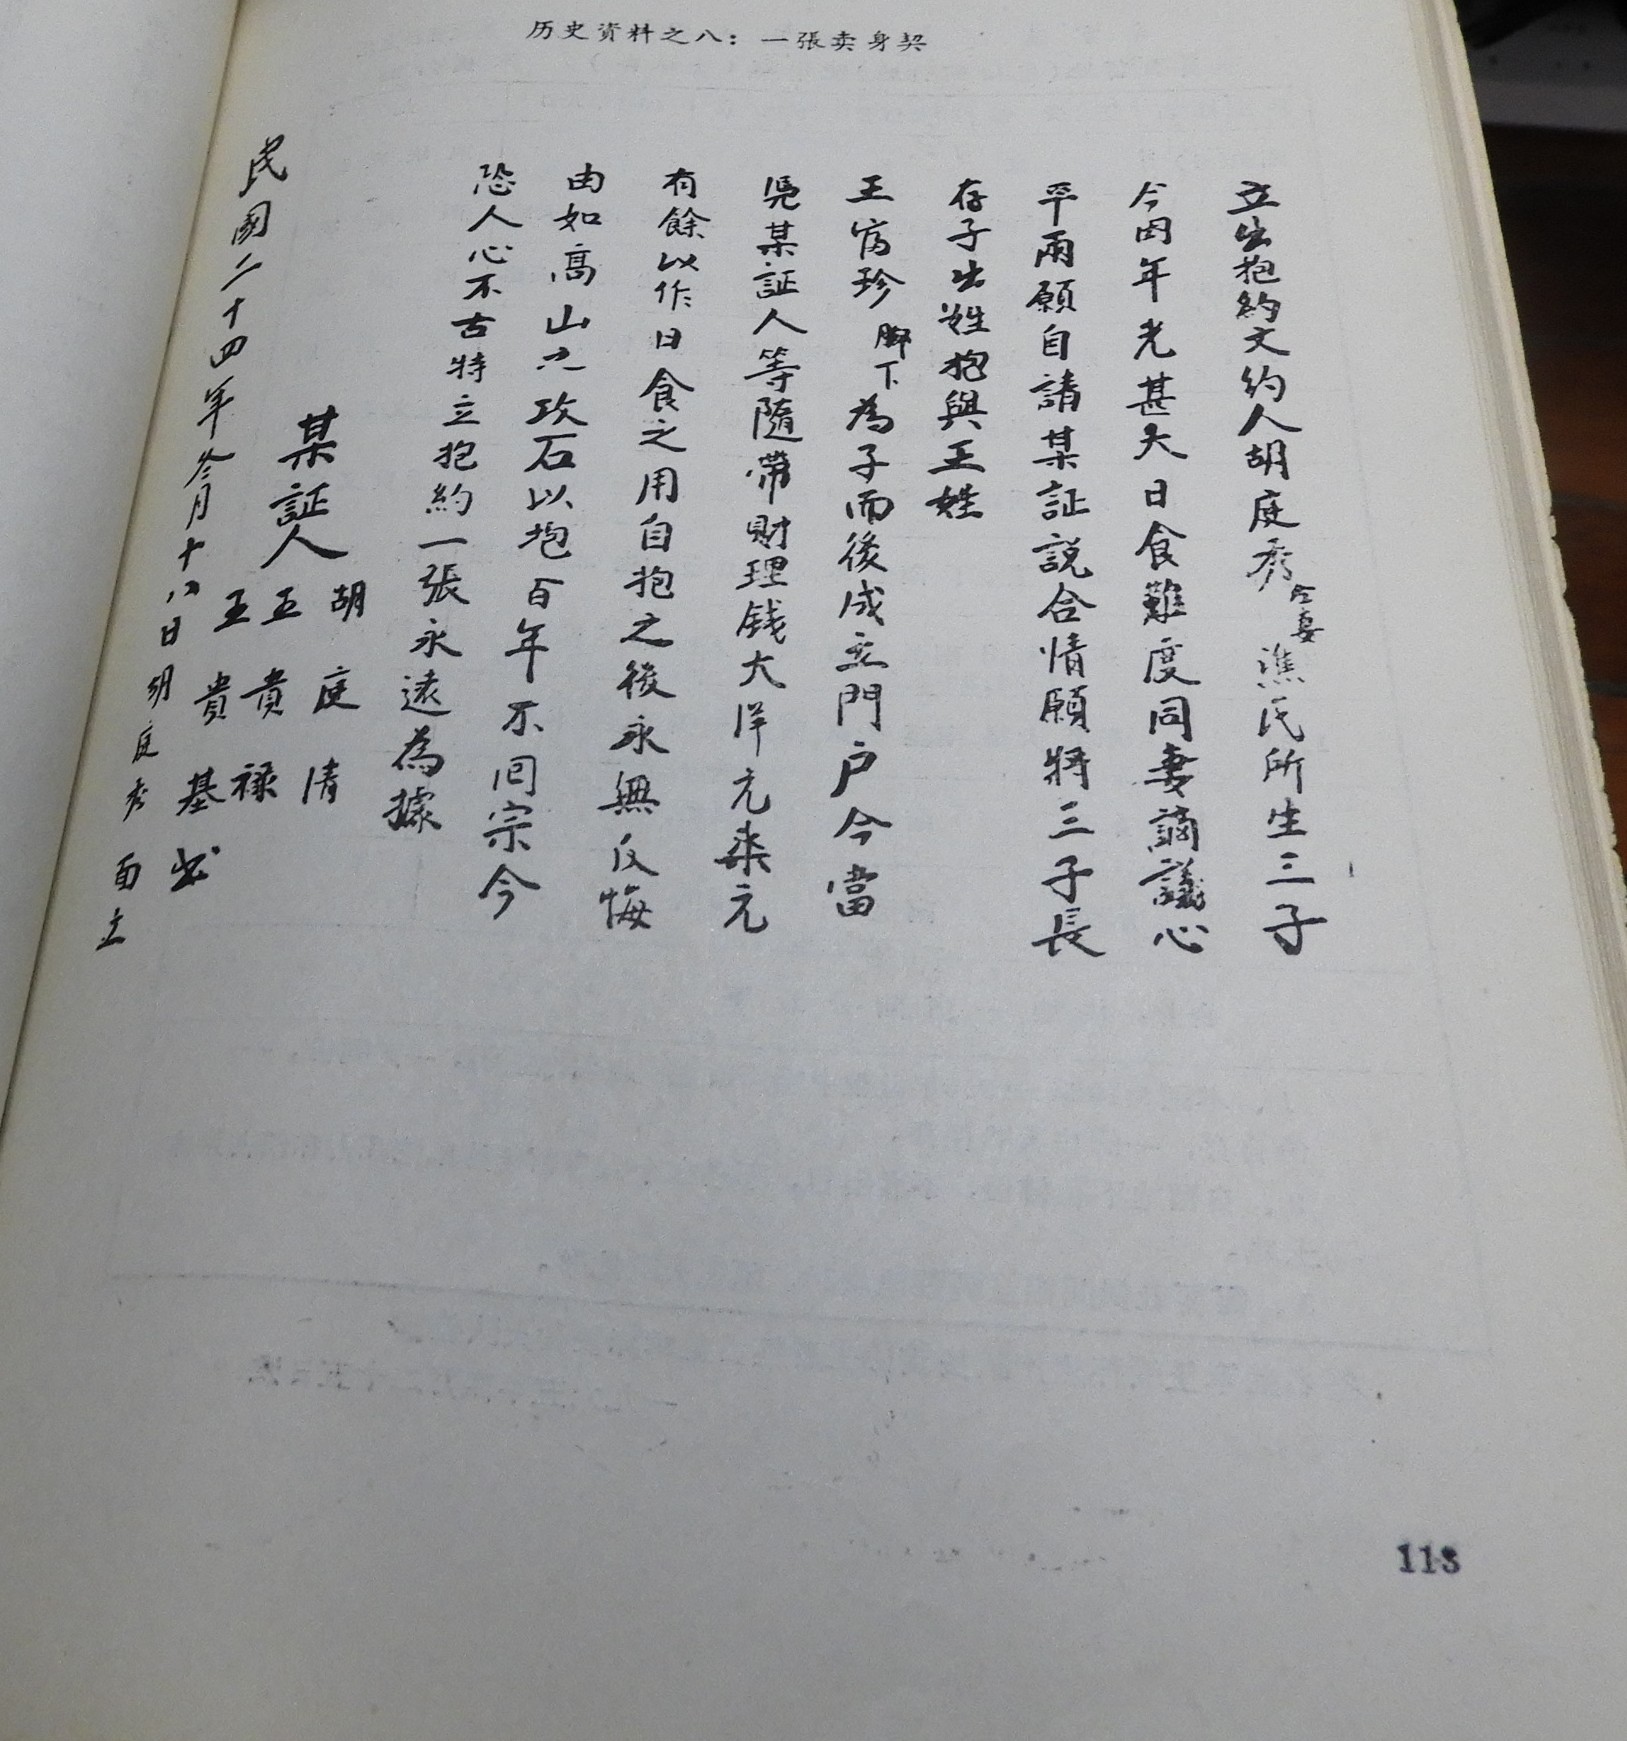 历史资料之八：一張卖身契
立出抱約文约人胡庭秀仝妻譙氏所生三子
今因年光甚大日食難度同妻謪議心
平兩願自請某証説合情願將三子長
存子出姓抱與王姓
王富珍脚下為子而後成立門户今當
凭某証人等隨带財理銭大洋元柒元
有餘以作日食之用自抱之後永無反悔
由如高山六攻石以抱百年不回宗今
恐人心不古特立抱約一張永遠為據
某証人
胡庭清
王貴禄
王貴基 書
民國二十四年冬月十八日胡庭秀 面立
113